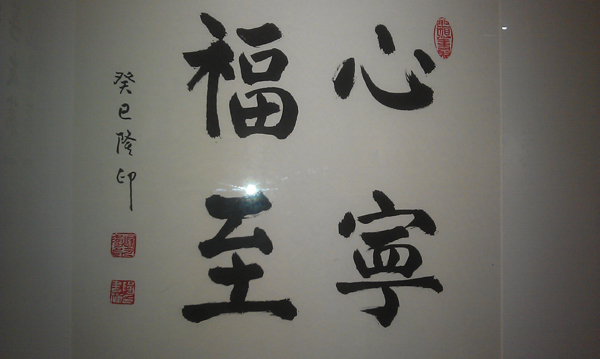 心寧
福至
癸巳隆印